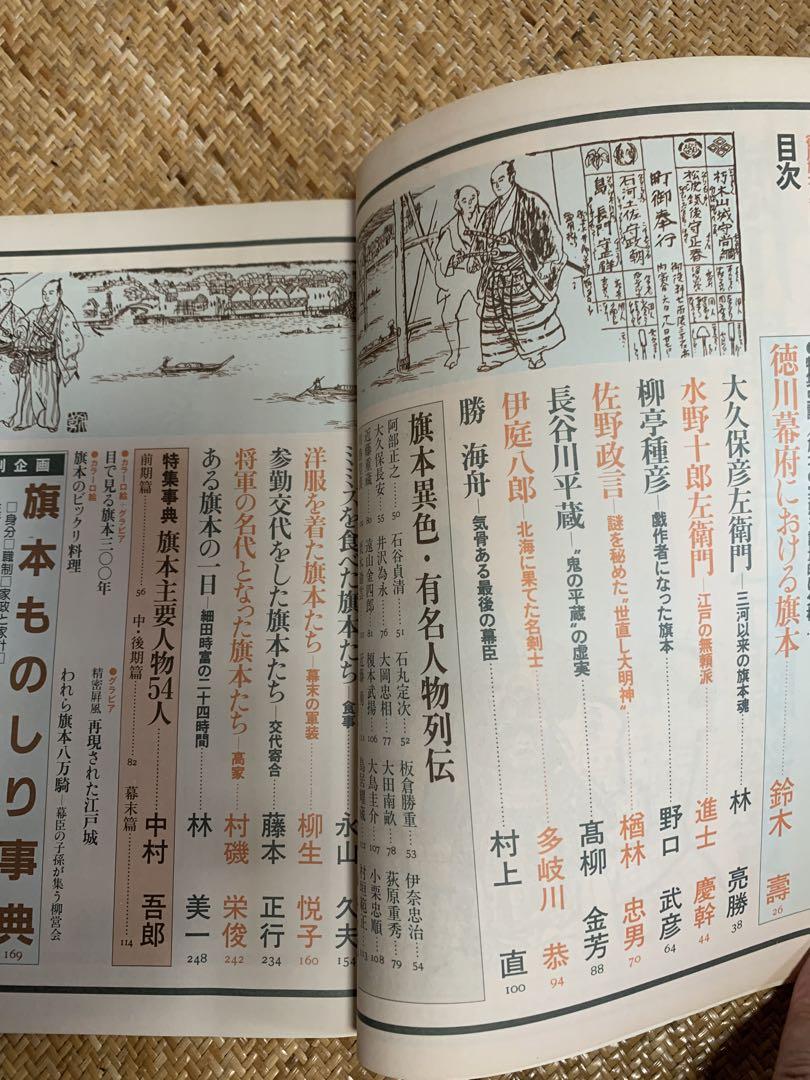 目次
町御奉行
徳川幕府における旗本 鈴木 壽 26
大久保彦左衛門―三河以来の旗本魂 林 亮勝 38
水野十郎左衛門―江戸の無頼派 進士 慶幹 44
柳亭種彦―戯作者になった旗本 野口 武彦 64
佐野政言―謎を秘めた“世直し大明神” 楢林 忠男 70
長谷川平蔵―“鬼の平蔵”の虚実 髙柳 金芳 88
伊庭八郎―北海に果てた名剣士 多岐川 恭 94
勝 海舟―気骨ある最後の幕臣 村上 直 100
旗本異色・有名人物列伝
阿部正之 50 石谷貞清 51 石丸定次 52 板倉勝重 53 伊奈忠治 54
大久保長安 55 井沢為永 76 大岡忠相 77 大田南畝 78 荻原重秀 79
近藤重蔵 80 遠山金四郎 81 榎本武揚 106 大鳥圭介 107 小栗忠順 108
ミミズを食べた旗本たち―食事 永山 久夫 154
洋服を着た旗本たち―幕末の軍装 柳生 悦子 160
参勤交代をした旗本たち―交代寄合 藤本 正行 234
将軍の名代となった旗本たち―高家 村磯 栄俊 242
ある旗本の一日―細田時富の二十四時間 林 美一 248
特集事典 旗本主要人物54人 中村 吾郎
前期篇 56 中・後期篇 82 幕末篇 114
●カラー口絵・グラビア
目で見る旗本三〇〇年
●カラー口絵
旗本のビックリ料理
●グラビア
精密屛風 再現された江戸城
われら旗本八万騎―幕臣の子孫が集う柳営会
企画
旗本ものしり事典 169
□身分□職制□家政と家計□